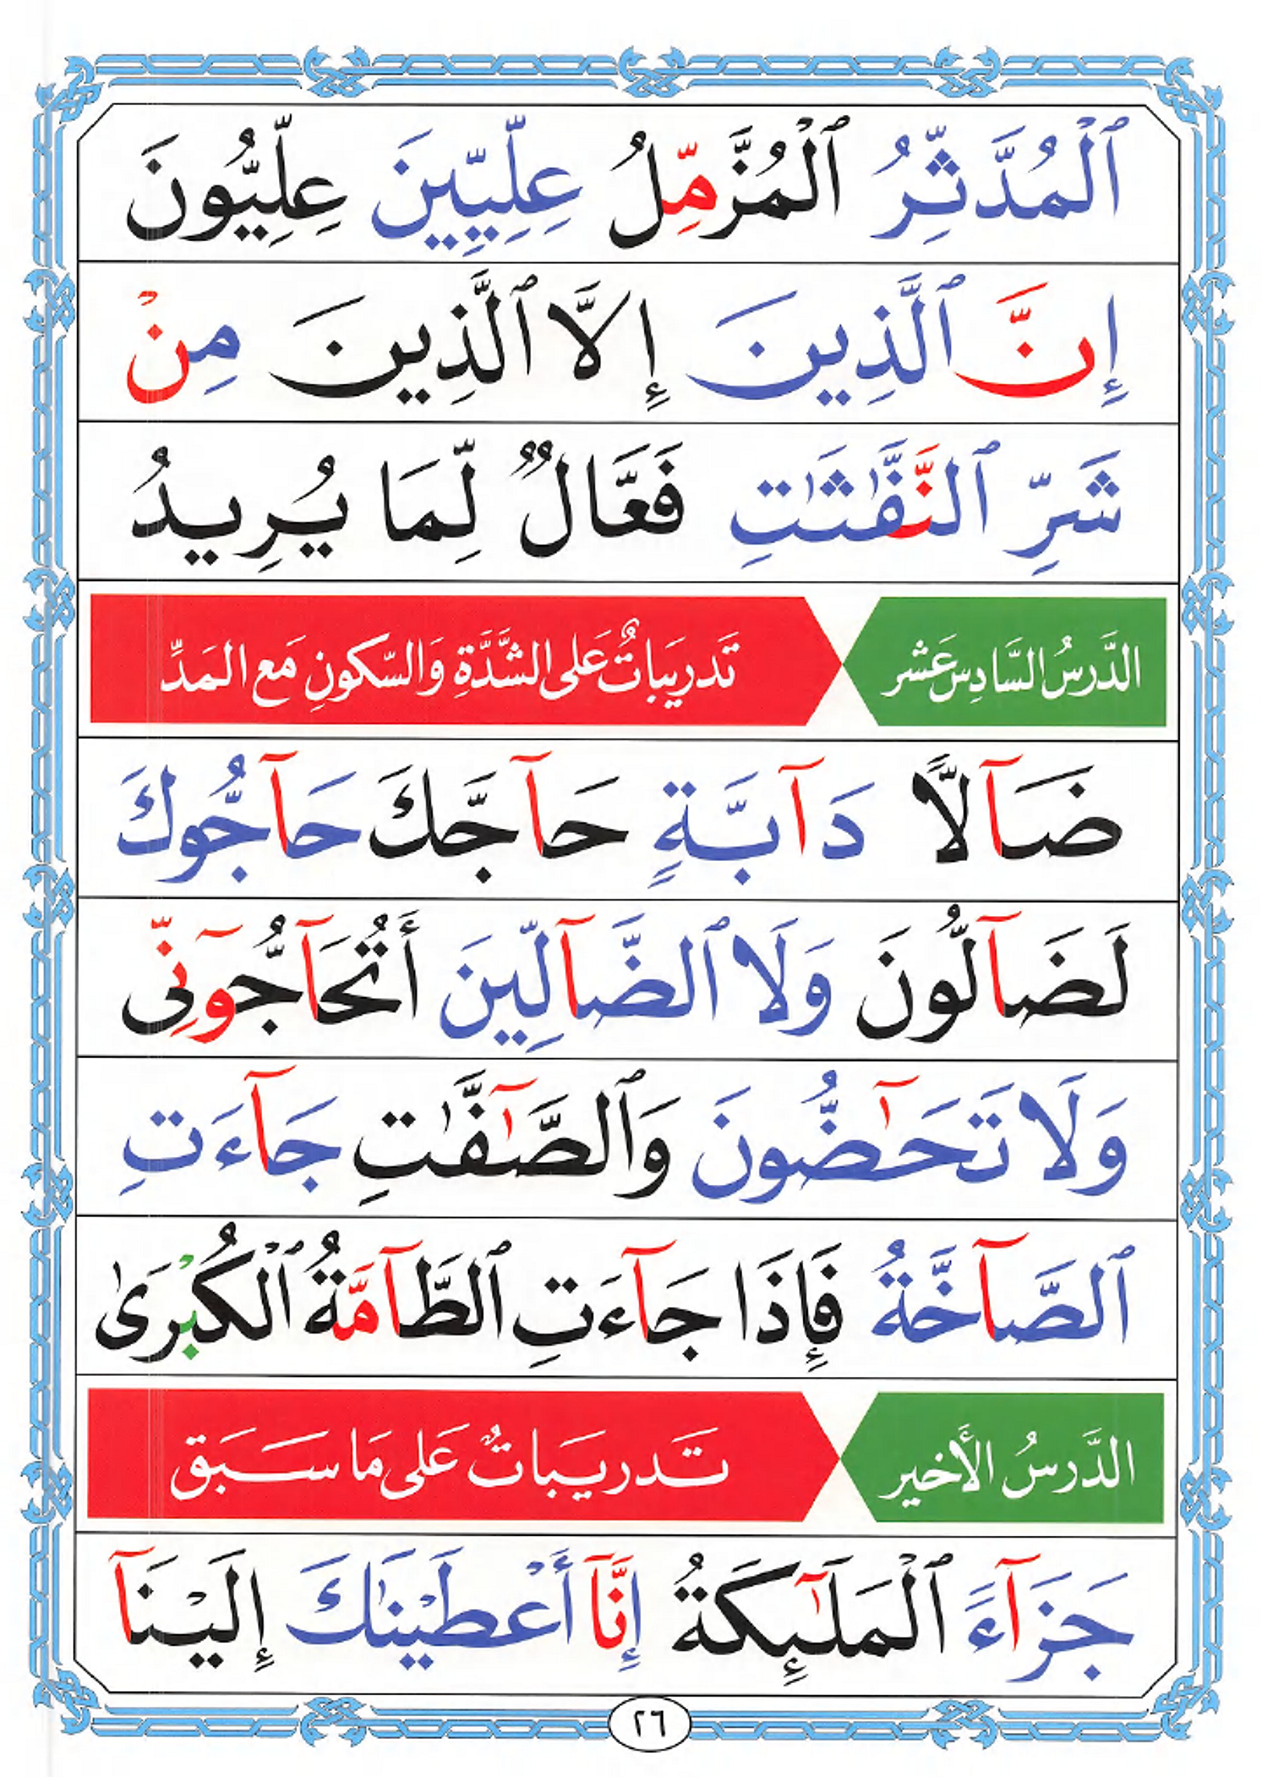 ٱلْمُدَّثِّرُ ٱلْمُزَّمِّلُ عِلِّيِّينَ عِلِّيُّونَ
إِنَّ ٱلَّذِينَ إِلَّا ٱلَّذِينَ مِنْ
شَرِّ ٱلنَّفَّٰثَٰتِ فَعَّالٌ لِّمَا يُرِيدُ
الدَّرسُ السَّادِس عَشر تَدريبَاتٌ عَلى الشَّدَّةِ وَالسّكونِ مَع المَدِّ
ضَآلًّا دَآبَّةٍ حَآجَّكَ حَآجُّوكَ
لَضَآلُّونَ وَلَا ٱلضَّآلِّينَ أَتُحَآجُّوٓنِّى
وَلَا تَحَٰٓضُّونَ وَٱلصَّٰٓفَّٰتِ جَآءَتِ
ٱلصَّآخَّةُ فَإِذَا جَآءَتِ ٱلطَّآمَّةُ ٱلْكُبْرَىٰ
الدَّرسُ الأَخير تَدريبَاتٌ عَلى مَا سَبَق
جَزَآءَ ٱلْمَلَٰٓئِكَةُ إِنَّآ أَعْطَيْنَٰكَ إِلَيْنَآ
٢٦